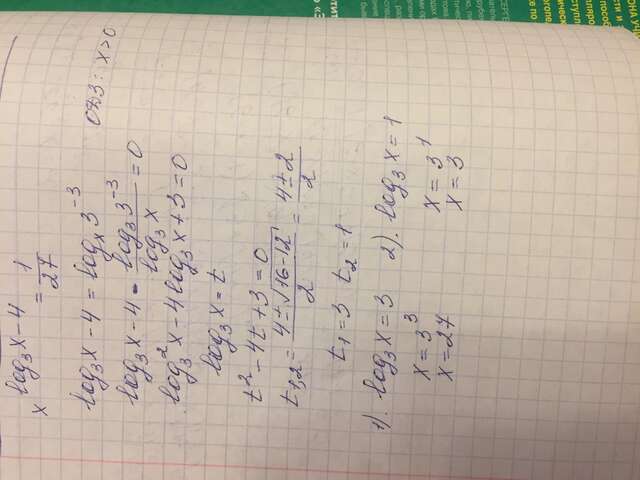 x^(log₃x-4) = 1/27
log₃x - 4 = logₓ3⁻³ ОДЗ: x>0
log₃x - 4 - (log₃3⁻³)/(log₃x) = 0
log₃²x - 4log₃x + 3 = 0
log₃x = t
t² - 4t + 3 = 0
t₁,₂ = (4±√(16-12))/2 = (4±2)/2
t₁ = 3 t₂ = 1
1). log₃x = 3 2). log₃x = 1
x = 3³ x = 3¹
x = 27 x = 3